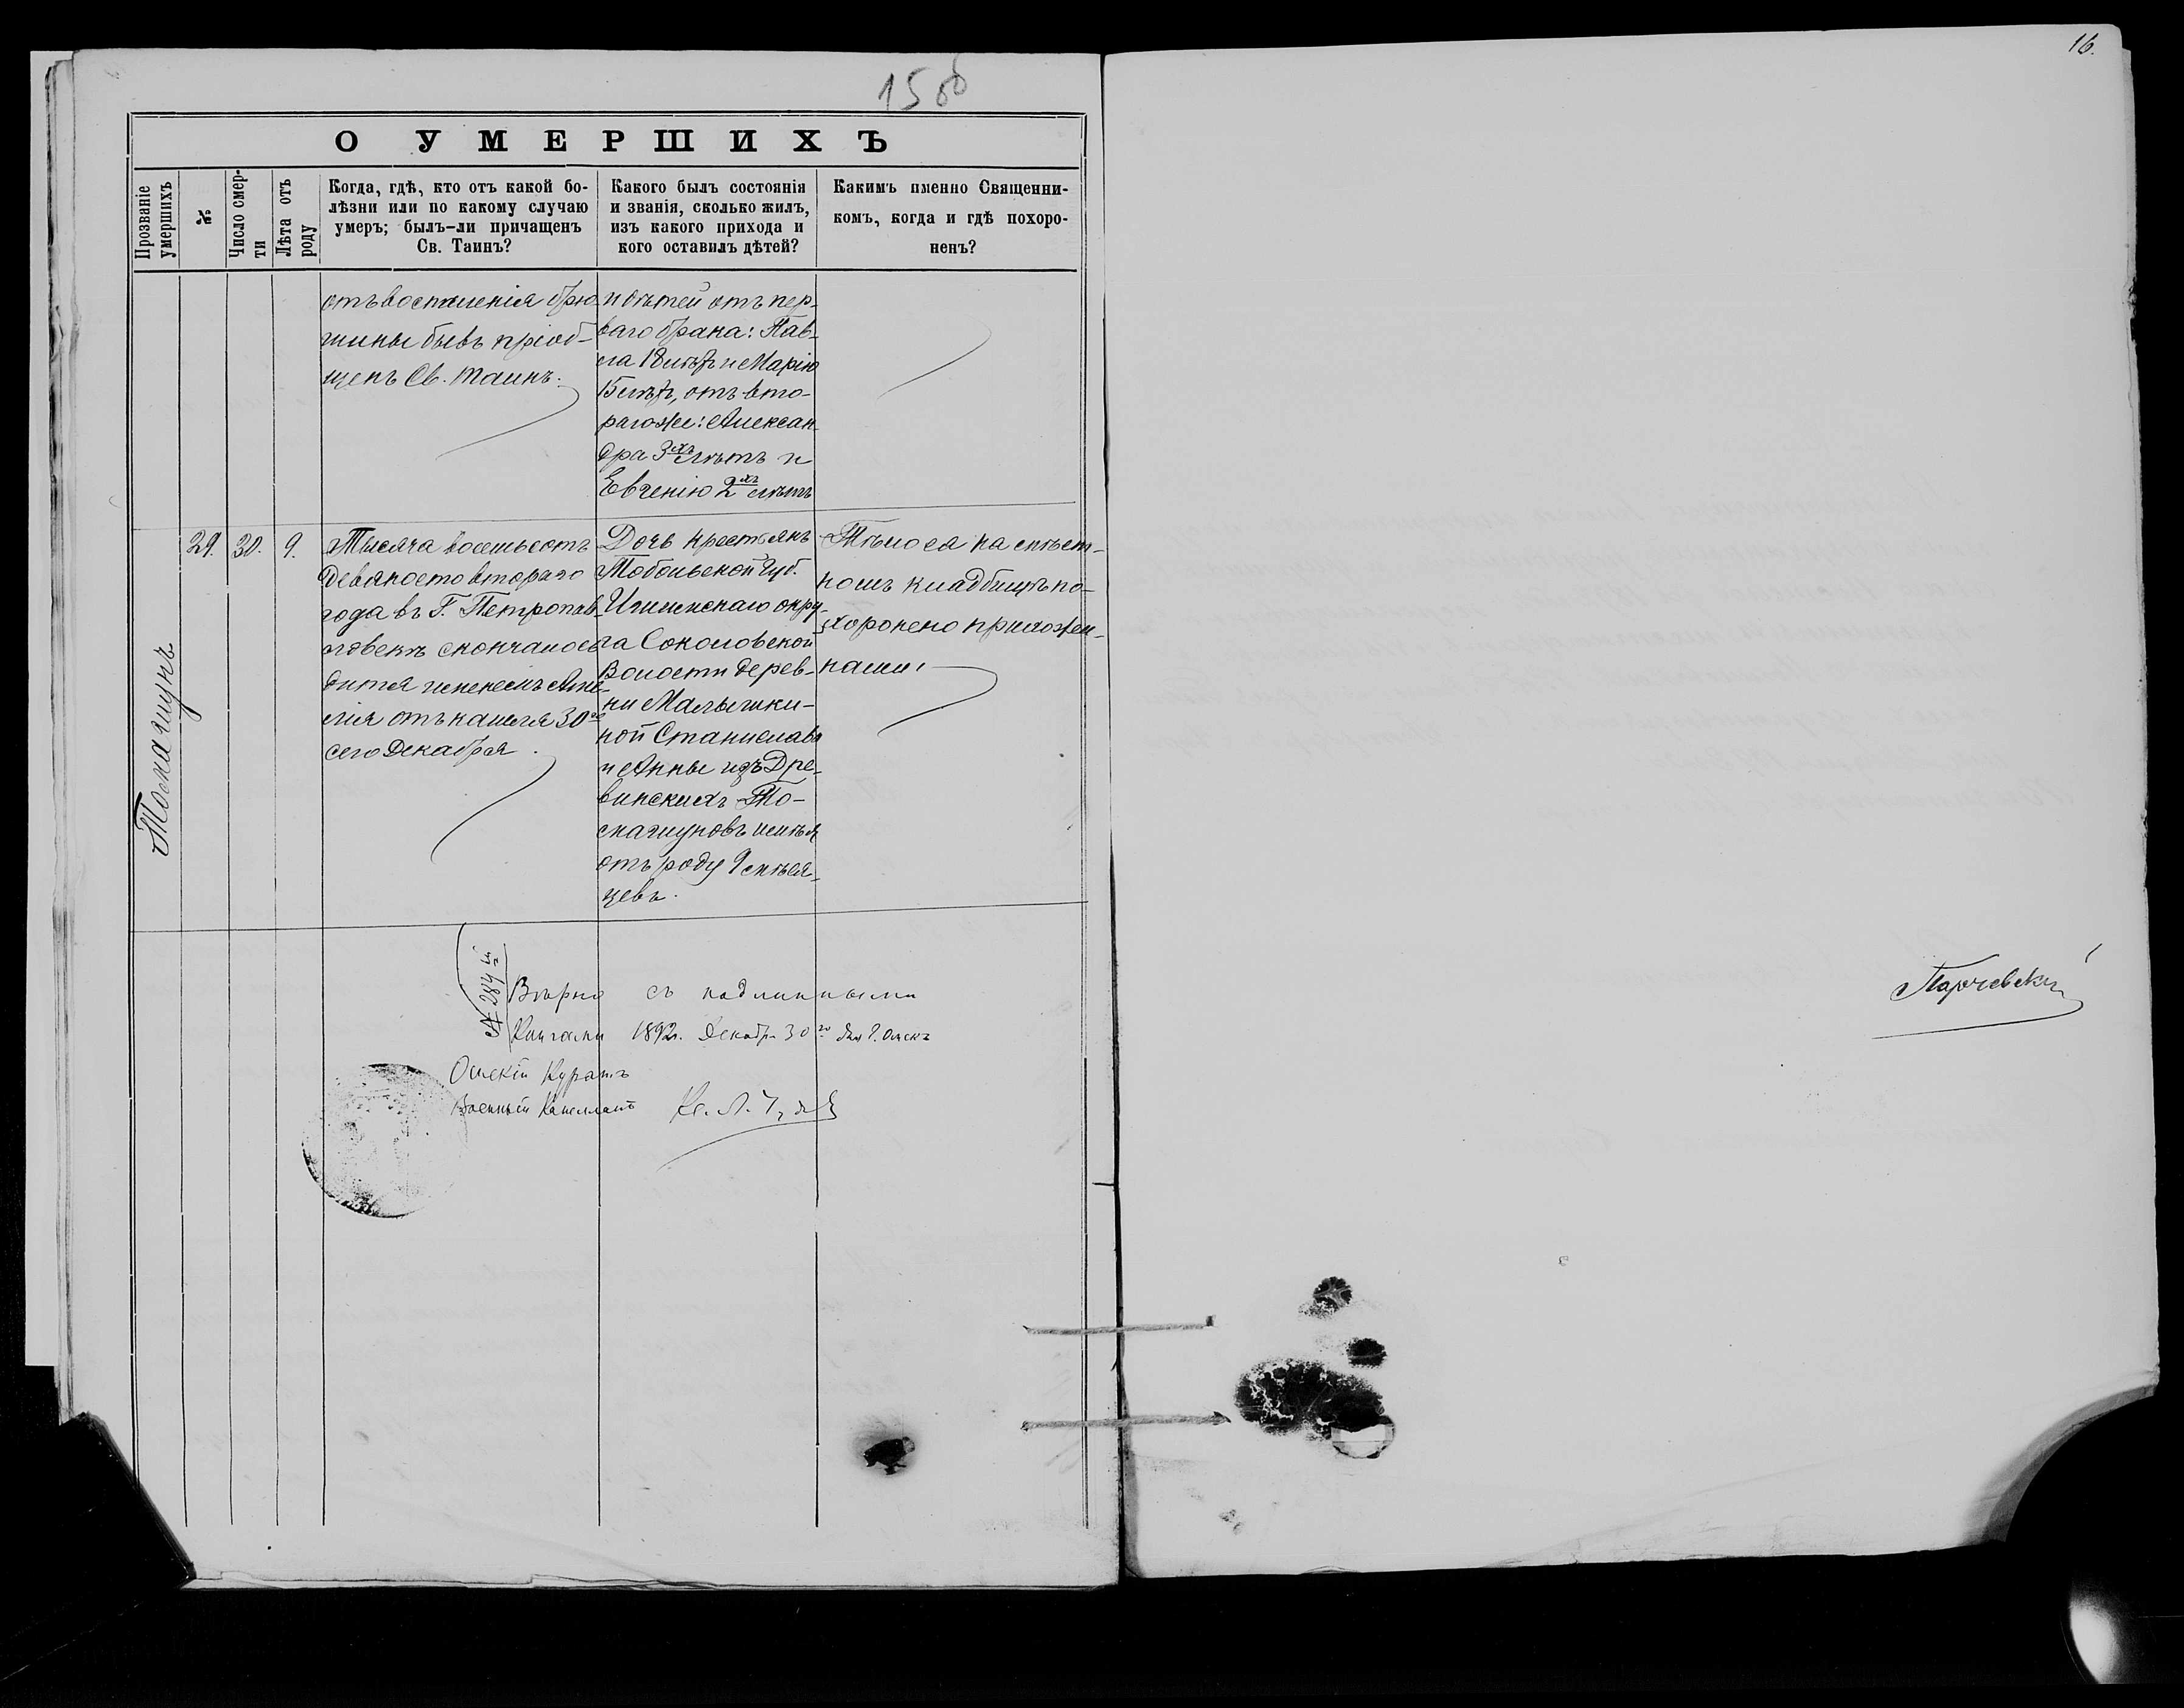 15 об
16.
О УМЕРШИХЪ
Прозваніе умершихъ
№
Число смер-
ти
Лѣта отъ
роду
Когда, гдѣ, кто отъ какой бо-
лѣзни или по какому случаю
умеръ; былъ-ли причащенъ
Св. Таинъ?
Какого былъ состоянія
и званія, сколько жилъ,
изъ какого прихода и
кого оставилъ дѣтей?
Какимъ именно Священни-
комъ, когда и гдѣ похоро-
ненъ?
отъ воспаленія брю-
шины бывъ пріоб-
щенъ Св. Таинъ.
и дѣтей отъ пер-
ваго брака: Пав-
ла 18 лѣтъ и Марію
15 лѣтъ, отъ вто-
рагоже: Алексан-
дра 3хъ лѣтъ и
Евгенію 2хъ лѣтъ
29. 30. 9.
Тысяча восемьсотъ
девяносто втораго
года въ Г. Петропав-
ловскѣ скончалось
дитя именемъ Аме-
лія отъ кашля 30го
сего Декабря.
Дочь крестьянъ
Тобольской Губ.
Ишимскаго окру-
га Соколовской
Волости дерев-
ни Малышки-
ной Станислава
и Анны изъ Дре-
винскихъ То-
скагуновъ имѣя
отъ роду 9 мѣся-
цевъ.
Тѣло ея на мѣст-
номъ кладбищѣ по-
хоронено прихожа-
нами.
№ 284
Вѣрно съ подлинными
Книгами 1892г. Декабр. 30го дня Г. Омскъ
Омскій Куратъ
Военный Капелланъ
Парчевскій